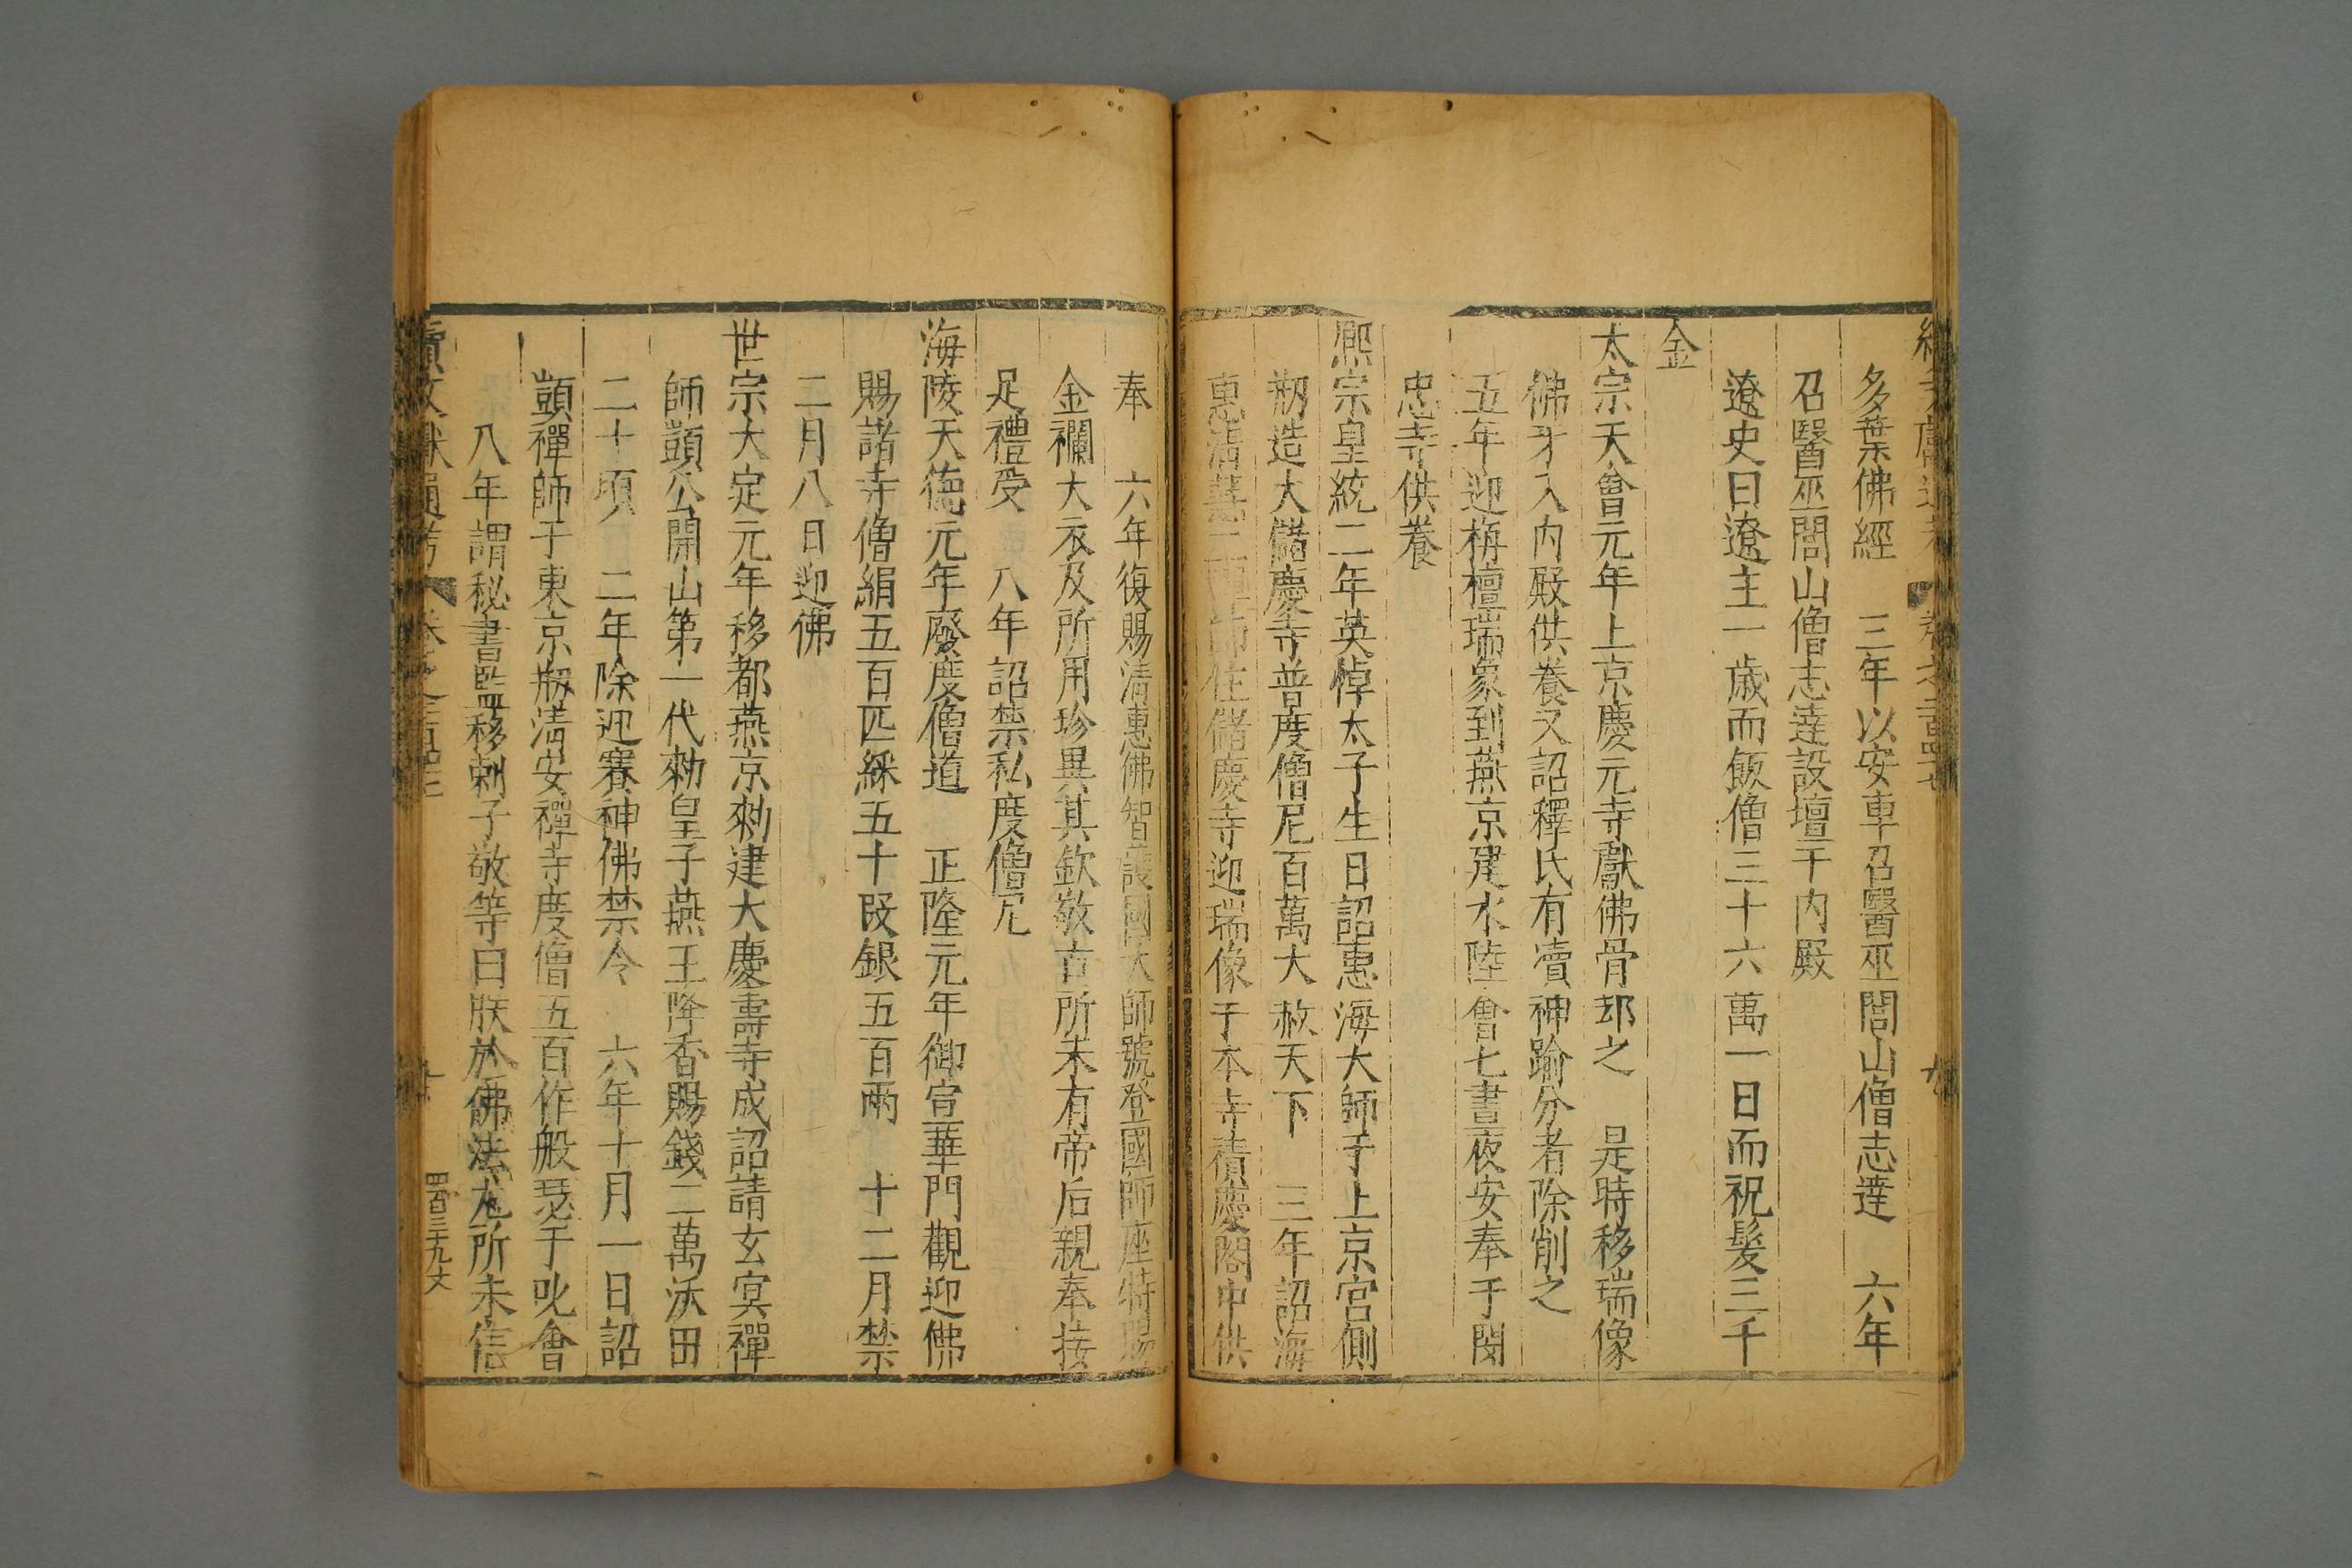 多葉佛經　三年以安車召醫巫閭山僧志達　六年
召醫巫閭山僧志達設壇于内殿
遼史曰遼主一歲而飯僧三十六萬一日而祝髮三千
金
太宗天會元年上京慶元寺獻佛骨却之　是時移瑞像
佛牙入内殿供養又詔釋氏有瀆神踰分者除削之
五年迎栴檀瑞象到燕京建水陸會七晝夜安奉于閔
忠寺供養
熙宗皇統二年英悼太子生日詔惠海大師于上京宮側
剏造大儲慶寺普度僧尼百萬大赦天下　三年詔海
惠清慧二禪師住儲慶寺迎瑞像于本寺積慶閣中供
奉　六年復賜清惠佛智護國大師號登國師座特賜
金襴大衣及所用珍異其欽敬古所未有帝后親奉接
足禮受　八年詔禁私度僧尼
海陵天德元年廢度僧道　正隆元年御宣華門觀迎佛
賜諸寺僧絹五百匹綵五十段銀五百兩　十二月禁
二月八日迎佛
世宗大定元年移都燕京勑建大慶壽寺成詔請玄冥禪
師顗公開山第一代勑皇子燕王降香賜錢二萬沃田
二十頃　二年除迎賽神佛禁令　六年十月一日詔
顗禪師于東京剏清安禪寺度僧五百作般瑟于吒會
八年謂秘書監移剌子敬等曰朕於佛法尤所未信
續文獻通考　卷之
四百三十九丈